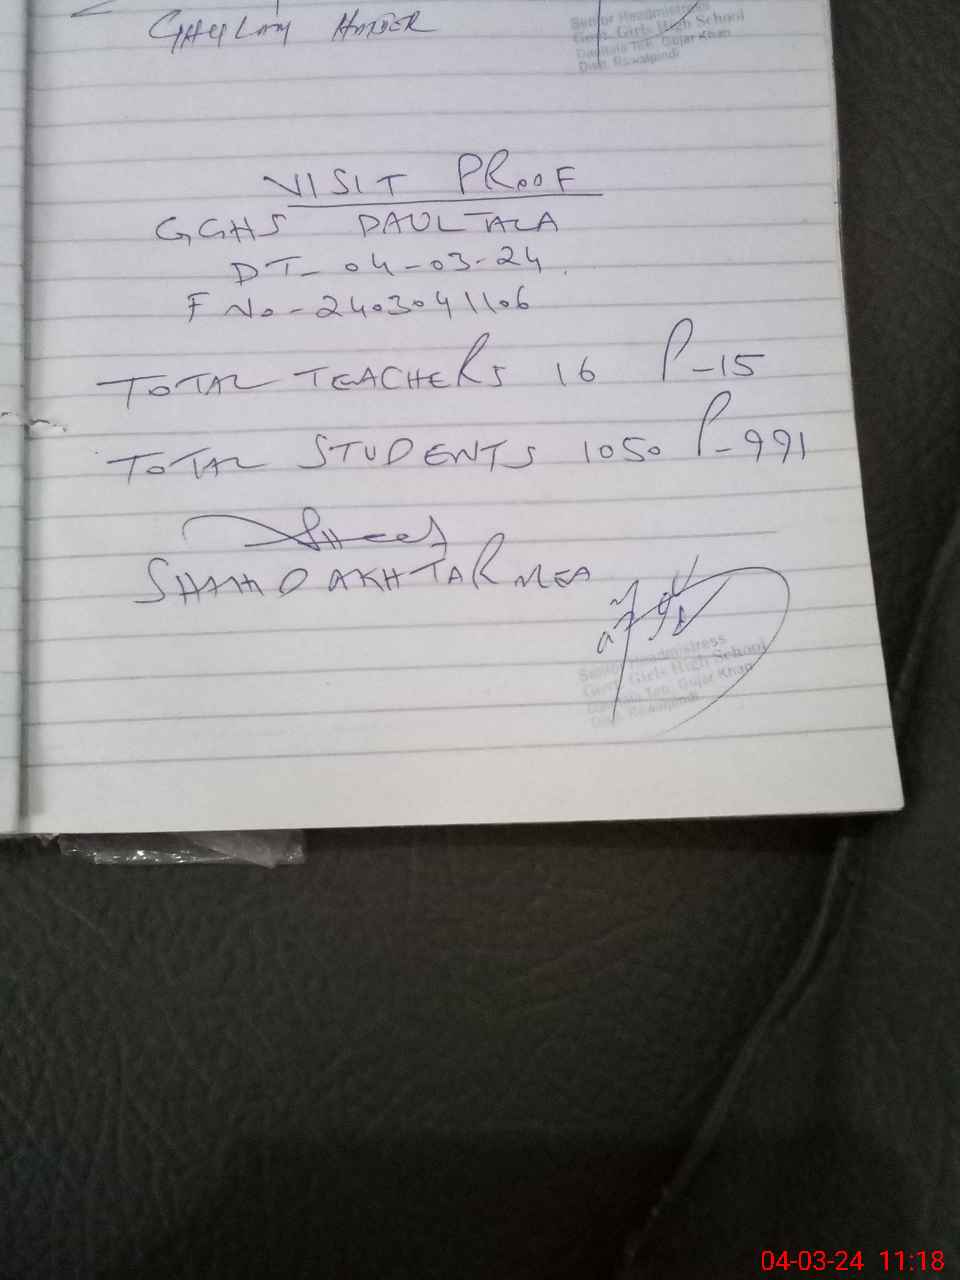 Senior Headmistress
Govt. Girls High School
Daultala Teh. Gujar Khan
Distt. Rawalpindi
VISIT PROOF
GGHS DAULTALA
DT- 04-03-24
F No-2403041106
TOTAL TEACHERS 16 P-15
TOTAL STUDENTS 1050 P-991
AKHTAR MEA
Senior Headmistress
Govt. Girls High School
Daultala Teh. Gujar Khan
Distt. Rawalpindi
04-03-24 11:18